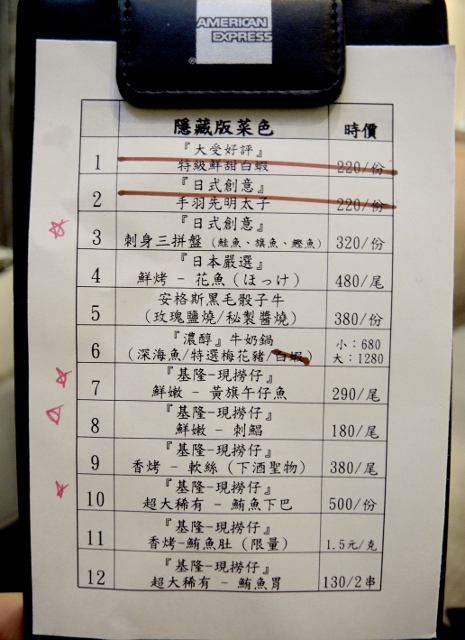 AMERICAN
EXPRESS
隱藏版菜色 時價
1 『大受好評』
特級鮮甜白蝦 220/份
2 『日式創意』
手羽先明太子 220/份
3 『日式創意』
刺身三拼盤（鮭魚、旗魚、鰹魚） 320/份
4 『日本嚴選』
鮮烤 - 花魚（ほっけ） 480/尾
5 安格斯黑毛骰子牛
（玫瑰鹽燒/秘製醬燒） 380/份
6 『濃醇』牛奶鍋 小：680
（深海魚/特選梅花豬/白蝦） 大：1280
7 『基隆-現撈仔』
鮮嫩 - 黃旗午仔魚 290/尾
8 『基隆-現撈仔』
鮮嫩 - 刺鯧 180/尾
9 『基隆-現撈仔』
香烤 - 軟絲（下酒聖物） 380/尾
10 『基隆-現撈仔』
超大稀有 - 鮪魚下巴 500/份
11 『基隆-現撈仔』
香烤-鮪魚肚（限量） 1.5元/克
12 『基隆-現撈仔』
超大稀有 - 鮪魚胃 130/2串